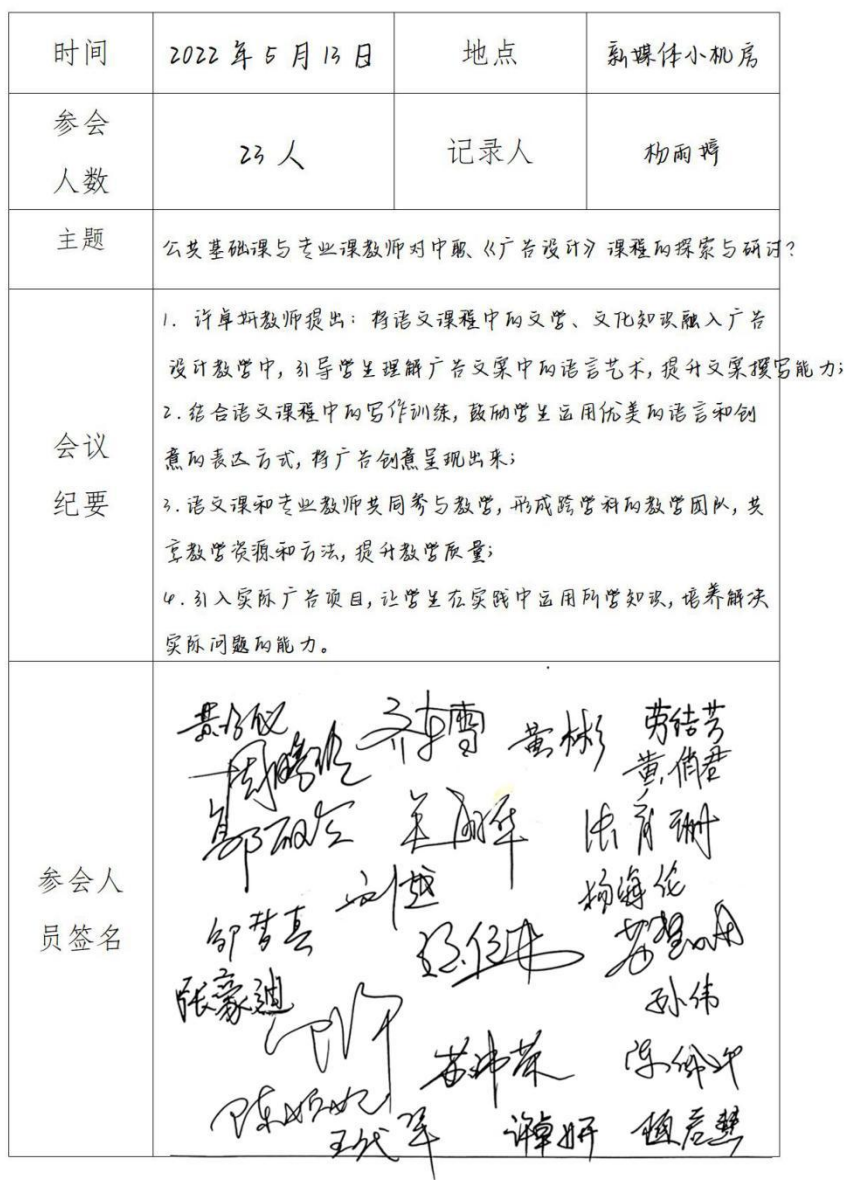 时间 2022年5月13日 地点 新媒体小机房
参会人数 23人 记录人 杨雨婷
主题 公共基础课与专业课教师对中职《广告设计》课程的探索与研讨?
会议纪要
1. 许卓妍教师提出:将语文课程中的文学、文化知识融入广告
设计教学中,引导学生理解广告文案中的语言艺术,提升文案撰写能力;
2.结合语文课程中的写作训练,鼓励学生运用优美的语言和创
意的表达方式,将广告创意呈现出来;
3.语文课和专业教师共同参与教学,形成跨学科的教学团队,共
享教学资源和方法,提升教学质量;
4.引入实际广告项目,让学生在实践中运用所学知识,培养解决
实际问题的能力。
参会人员签名
齐冬雪 黄彬 劳结芳
黄俏君
刘越 杨海伦
邹梦真
张豪迪 孙伟
许卓妍